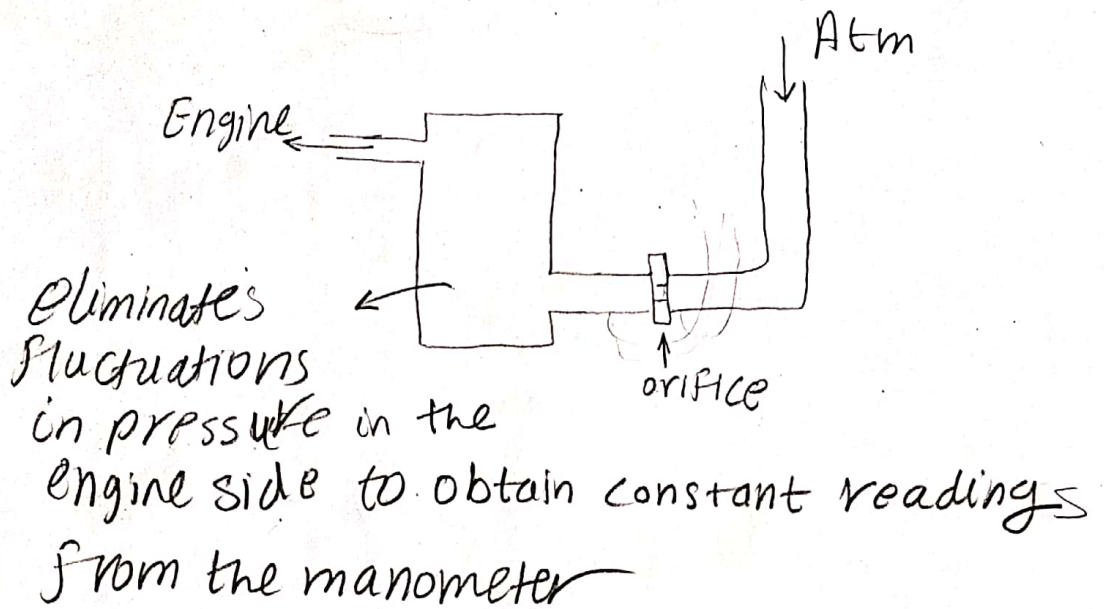 Atm
Engine
orifice
eliminates
fluctuations
in pressure in the
engine side to obtain constant readings
from the manometer